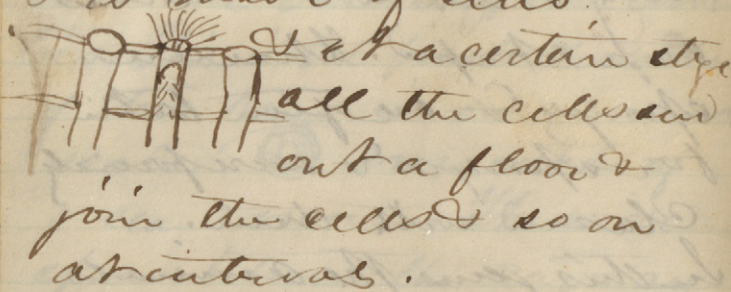 of cells
& at a certain stage
all the cells send
out a floor &
join the cells & so on
at intervals.